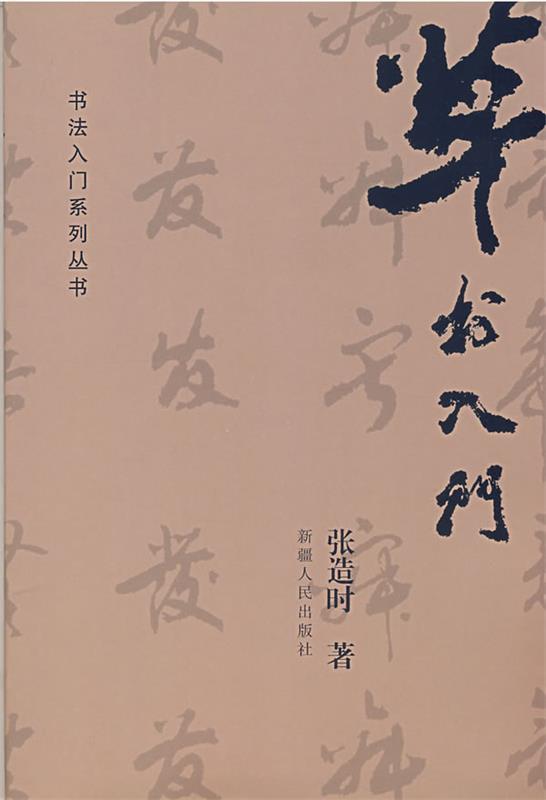 草书入門
张造时 著
新疆人民出版社
书法入门系列丛书